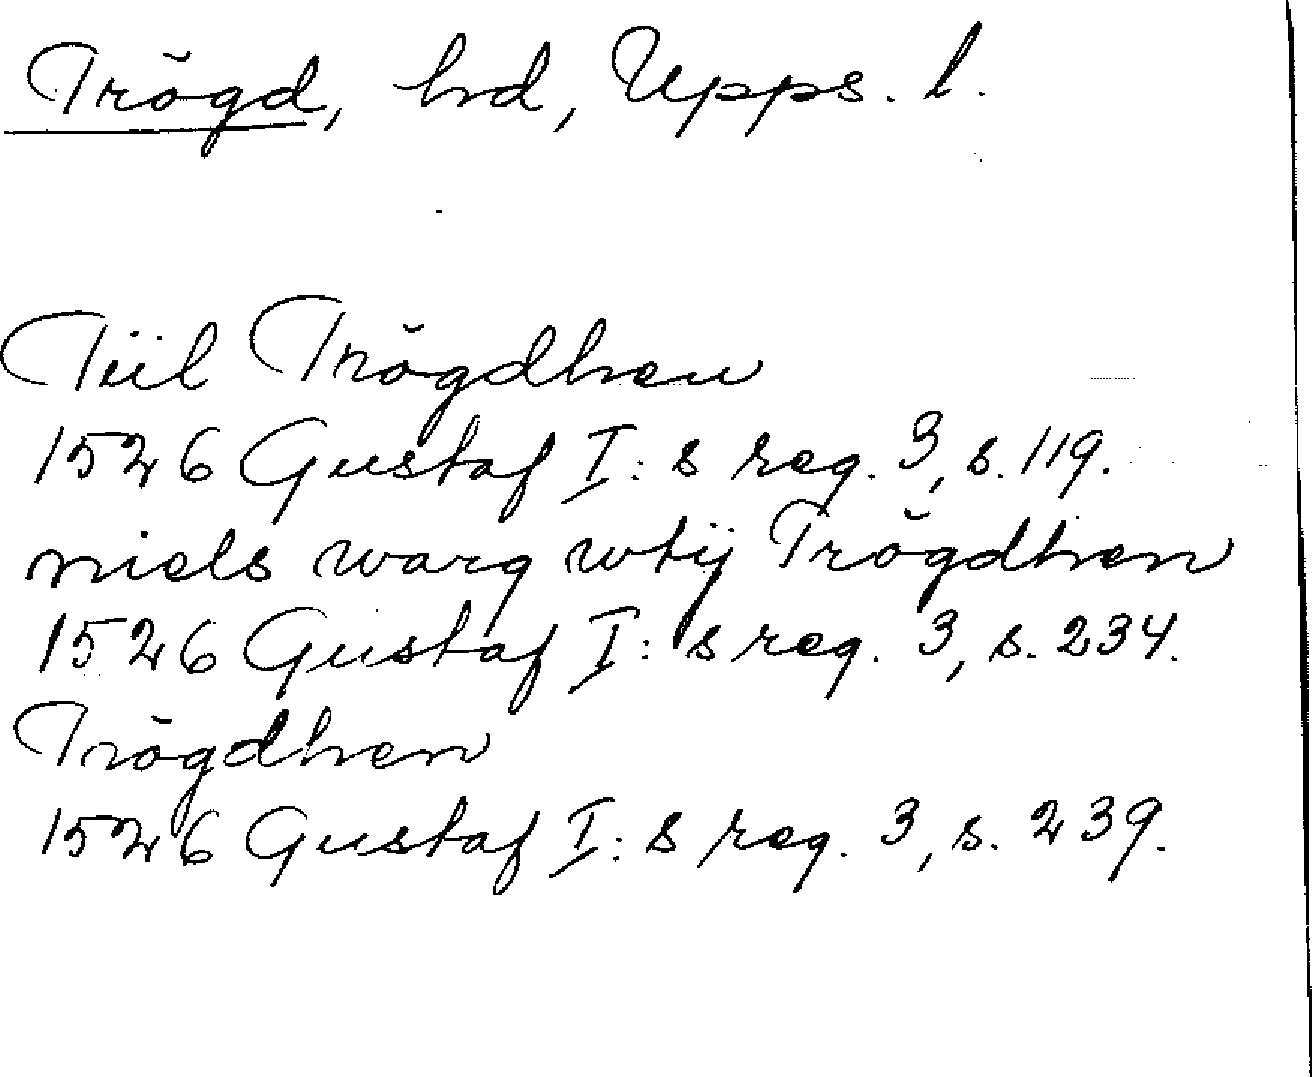 Trögd, hd, Upps. l.
Tiil Trögdhen
1526 Gustaf I:s reg. 3, s. 119.
niels warg wtij Trögdhen
1526 Gustaf I:s reg. 3, s. 234.
Trögdhen
1526 Gustaf I:s reg. 3, s. 239.